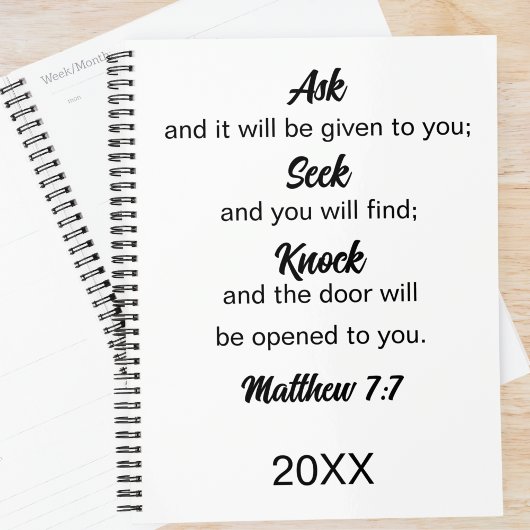 Week/Month
mon
Ask
and it will be given to you;
Seek
and you will find;
Knock
and the door will
be opened to you.
Matthew 7:7
20XX